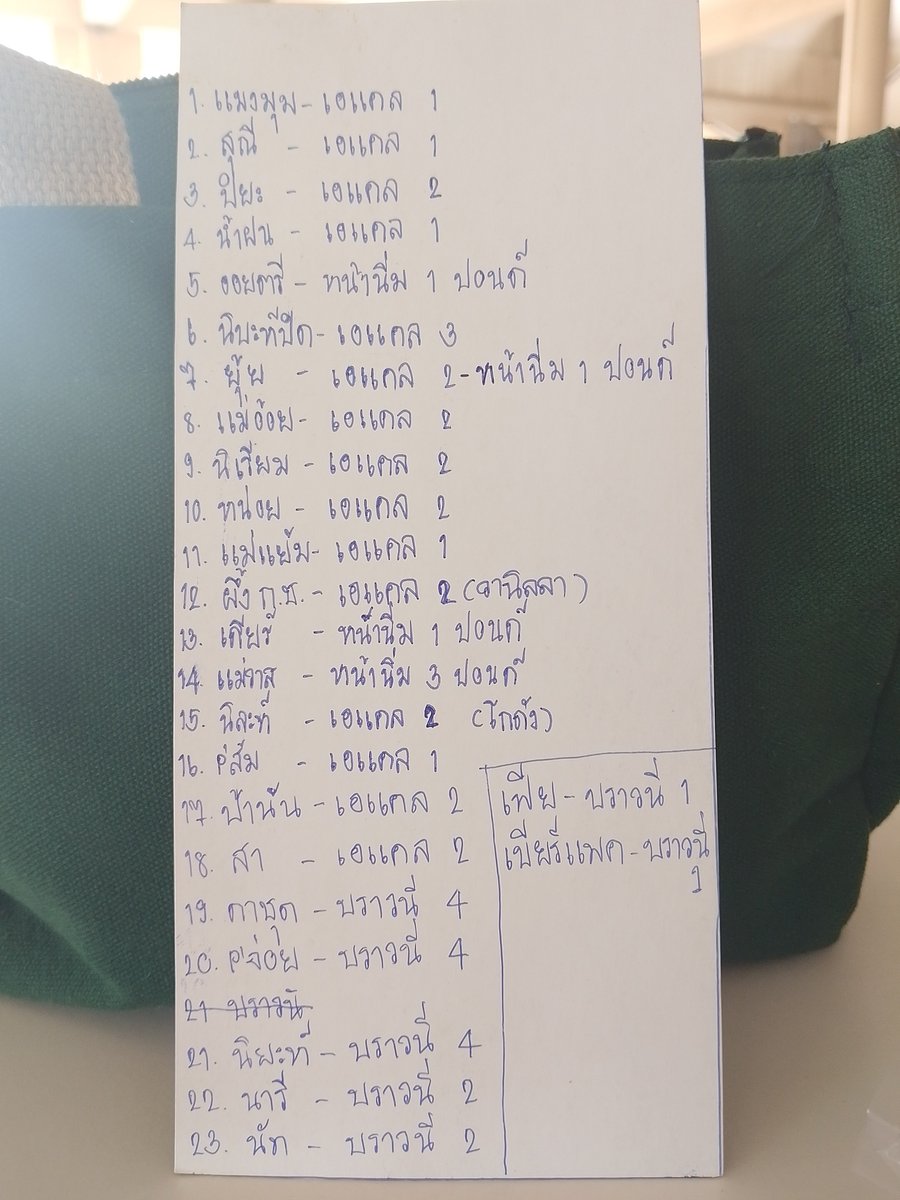 1. แมงมุม - เอแคล 1
2. สุณี - เอแคล 1
3. ปิยะ - เอแคล 2
4. น้ำฝน - เอแคล 1
5. ออยตารี - หน้านิ่ม 1 ปอนด์
6. นิบะที่ปัด - เอแคล 3
7. ยุ้ย - เอแคล 2 - หน้านิ่ม 1 ปอนด์
8. แม่อ้อย - เอแคล 2
9. นิเรียม - เอแคล 2
10. หน่อย - เอแคล 2
11. แม่แย้ม - เอแคล 1
12. ผึ้ง ก.ช. - เอแคล 2 (วานิลลา)
13. เดียร์ - หน้านิ่ม 1 ปอนด์
14. แม่วาส - หน้านิ่ม 3 ปอนด์
15. นิละห์ - เอแคล 2 (โกดัง)
16. P'ส้ม - เอแคล 1
17. ป้านัน - เอแคล 2
18. สา - เอแคล 2
19. ดาชุด - บราวนี่ 4
20. P'จ๋อย - บราวนี่ 4
21 บราวนี่
21. นิยะห์ - บราวนี่ 4
22. นารี - บราวนี่ 2
23. นัท - บราวนี่ 2
เฟีย - บราวนี่ 1
เบียร์แพค - บราวนี่
1